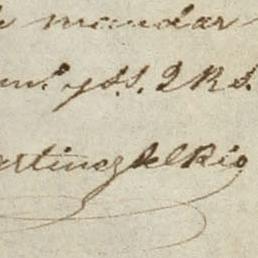 mandar
y S.S. Q B S.
artinez del Rio